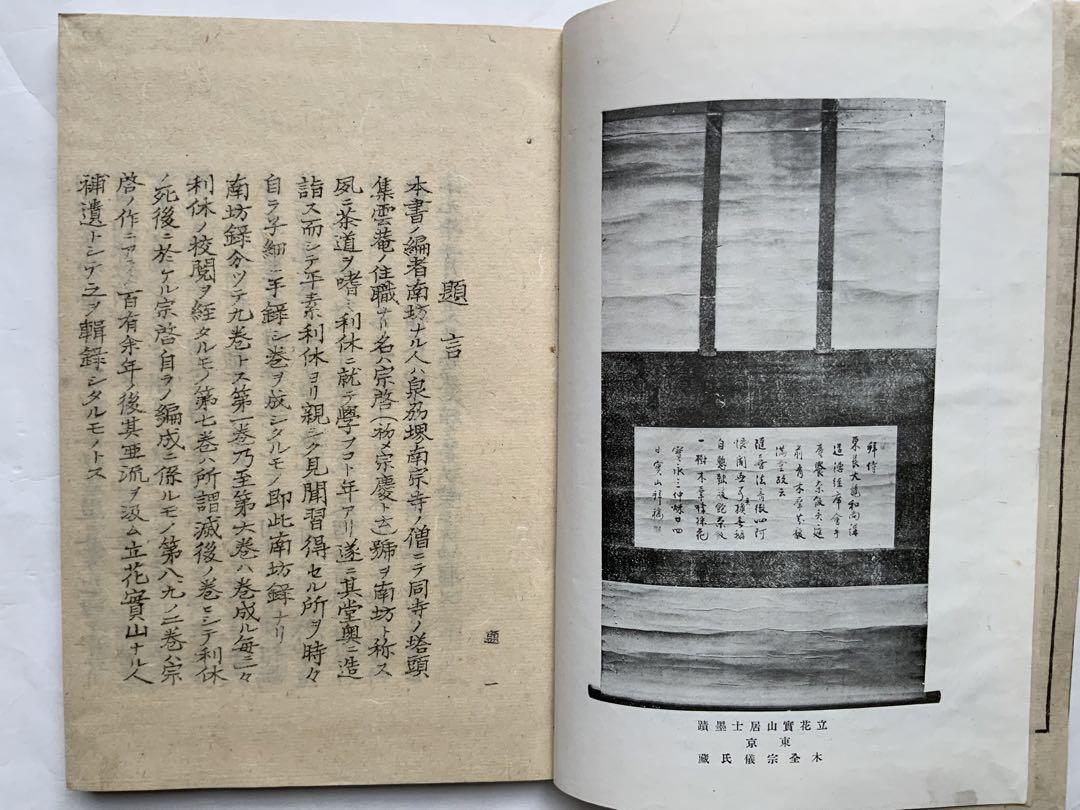 拜侍
東長大和尚講
寶永三仲秋廿四
日實山
立花實山居士墨蹟
東京
木全宗儀氏藏
題言
本書ノ編者南坊ナル人ハ泉州堺南宗寺ノ僧ニテ同寺ノ塔頭
集雲菴ノ住職ナリ名ハ宗啓(初メ宗慶ト云)號ヲ南坊ト称ス
夙ニ茶道ヲ嗜ミ利休ニ就テ學フコト年アリ遂ニ其堂奧ニ造
詣ス而シテ平素利休ヨリ親シク見聞習得セル所ヲ時々
自ラ子細ニ手録シ巻ヲ成シタルモノ即此南坊録ナリ
南坊録分ツテ九巻トス第一巻乃至第六巻ハ巻成ル毎ニ々
利休ノ校閲ヲ経タルモノ第七巻ハ所謂滅後ノ巻ニシテ利休
ノ死後ニ於ケル宗啓自ラノ編成ニ係ルモノ第八九ノ二巻ハ宗
啓ノ作ニアラス百有余年ノ後其亜流ヲ汲ム立花實山ナル人
補遺トシテ之ヲ輯録シタルモノトス
題 一